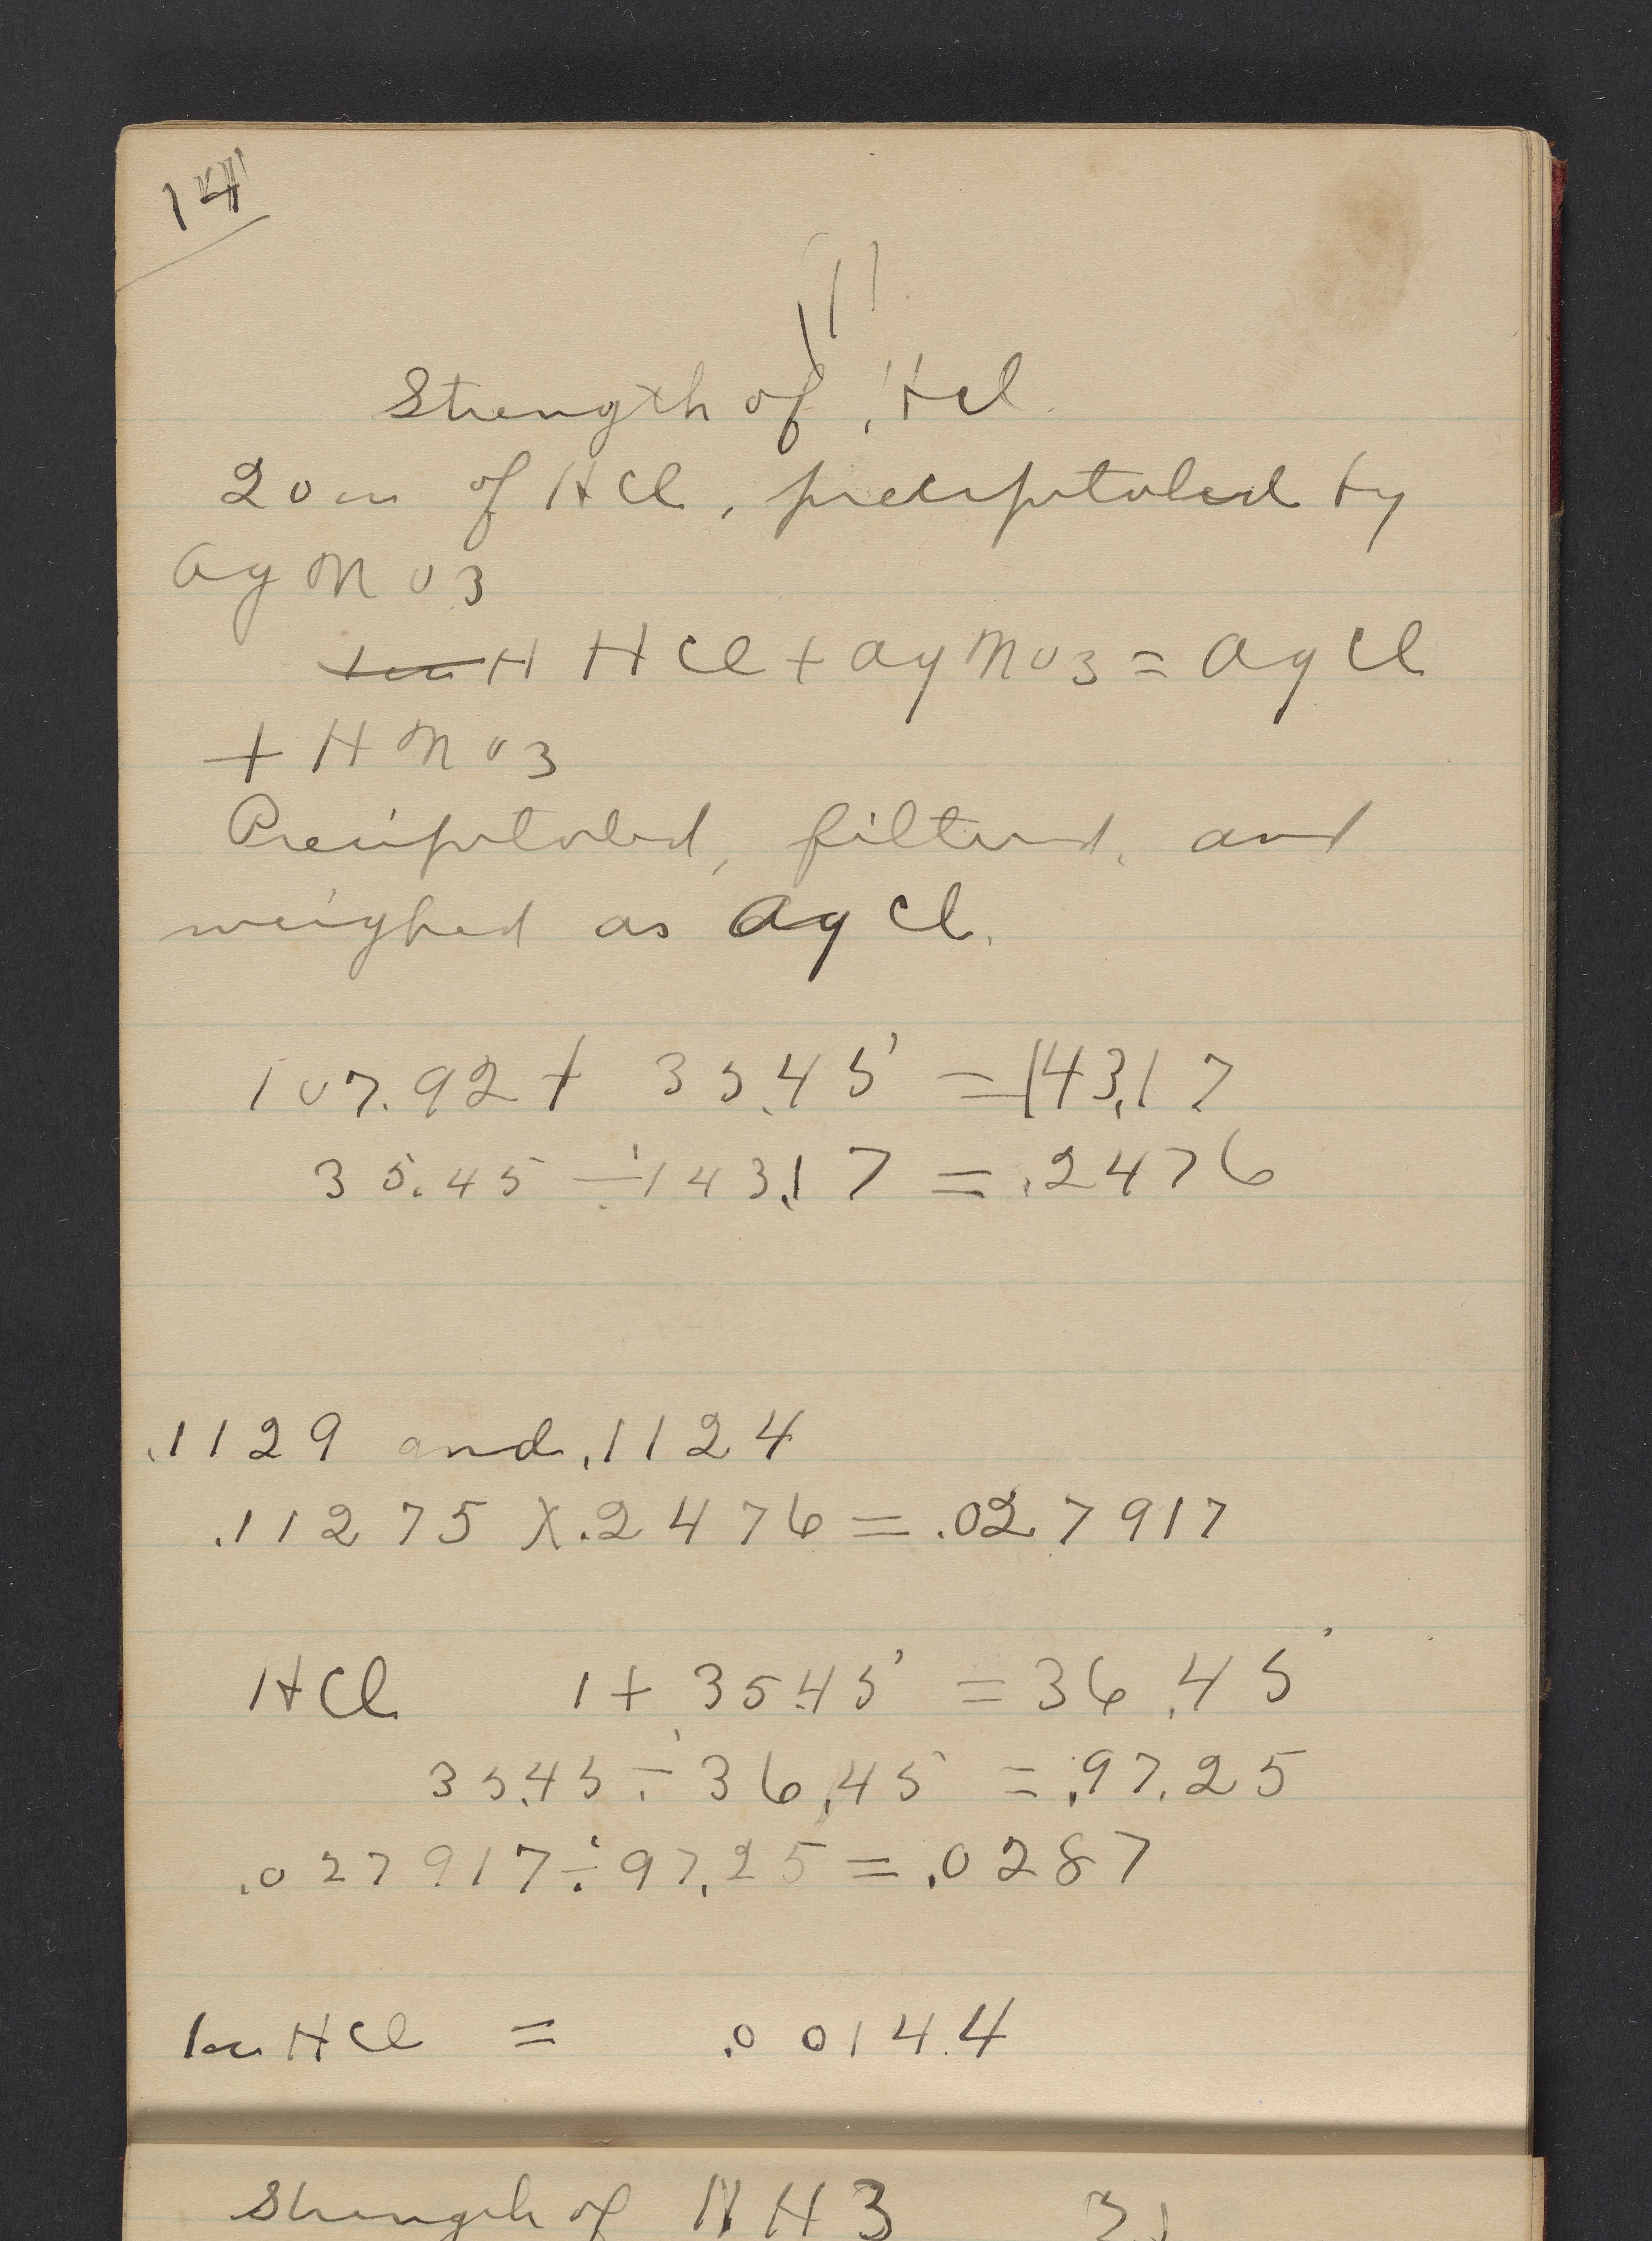 14
Strength of HCl
20cc of HCl, precipitated by
AgNO3
1cc H HCl + AgNO3 = AgCl
+ HNO3
Precipitated, filtered, and
weighed as AgCl.
107.92 + 35.45 = 143.17
35.45 ÷ 143.17 = .2476
.1129 and .1124
.11275 X .2476 = .027917
HCl 1 + 35.45 = 36.45
35.45 ÷ 36.45 = .97.25
.027917 ÷ 97.25 = .0287
1cc HCl = .00144
Strength of NH3